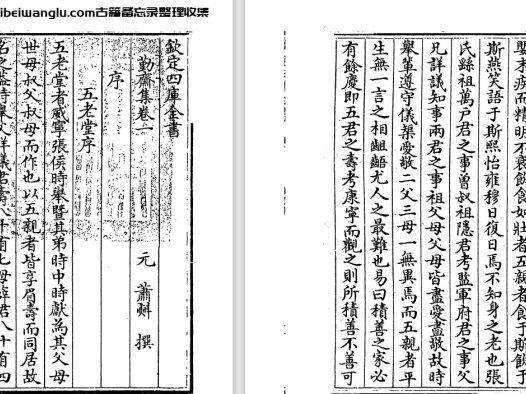 ibeiwanglu.com古籍备忘录整理收集
欽定四庫全書
勤齋集卷一
元 蕭㪺 撰
序
五老堂序
五老堂者咸寧張侯時舉暨其弟時中時獻為其父母
世母叔父叔母而作也以五親者皆享眉壽而同居故
斯燕笑語于斯熙怡雍穆日復日焉不知身之老也張
氏繇祖萬戶君之事曾叔祖隱君考監軍府君之事父
凡詳議知事兩君之事祖父母父母皆盡愛盡敬故時
舉輩遵守儀榘愛敬二父三母一無異焉而五親者平
生無一言之相齟齬尤人之最難也易曰積善之家必
有餘慶即五君之壽考康寧而觀之則所積善不善可